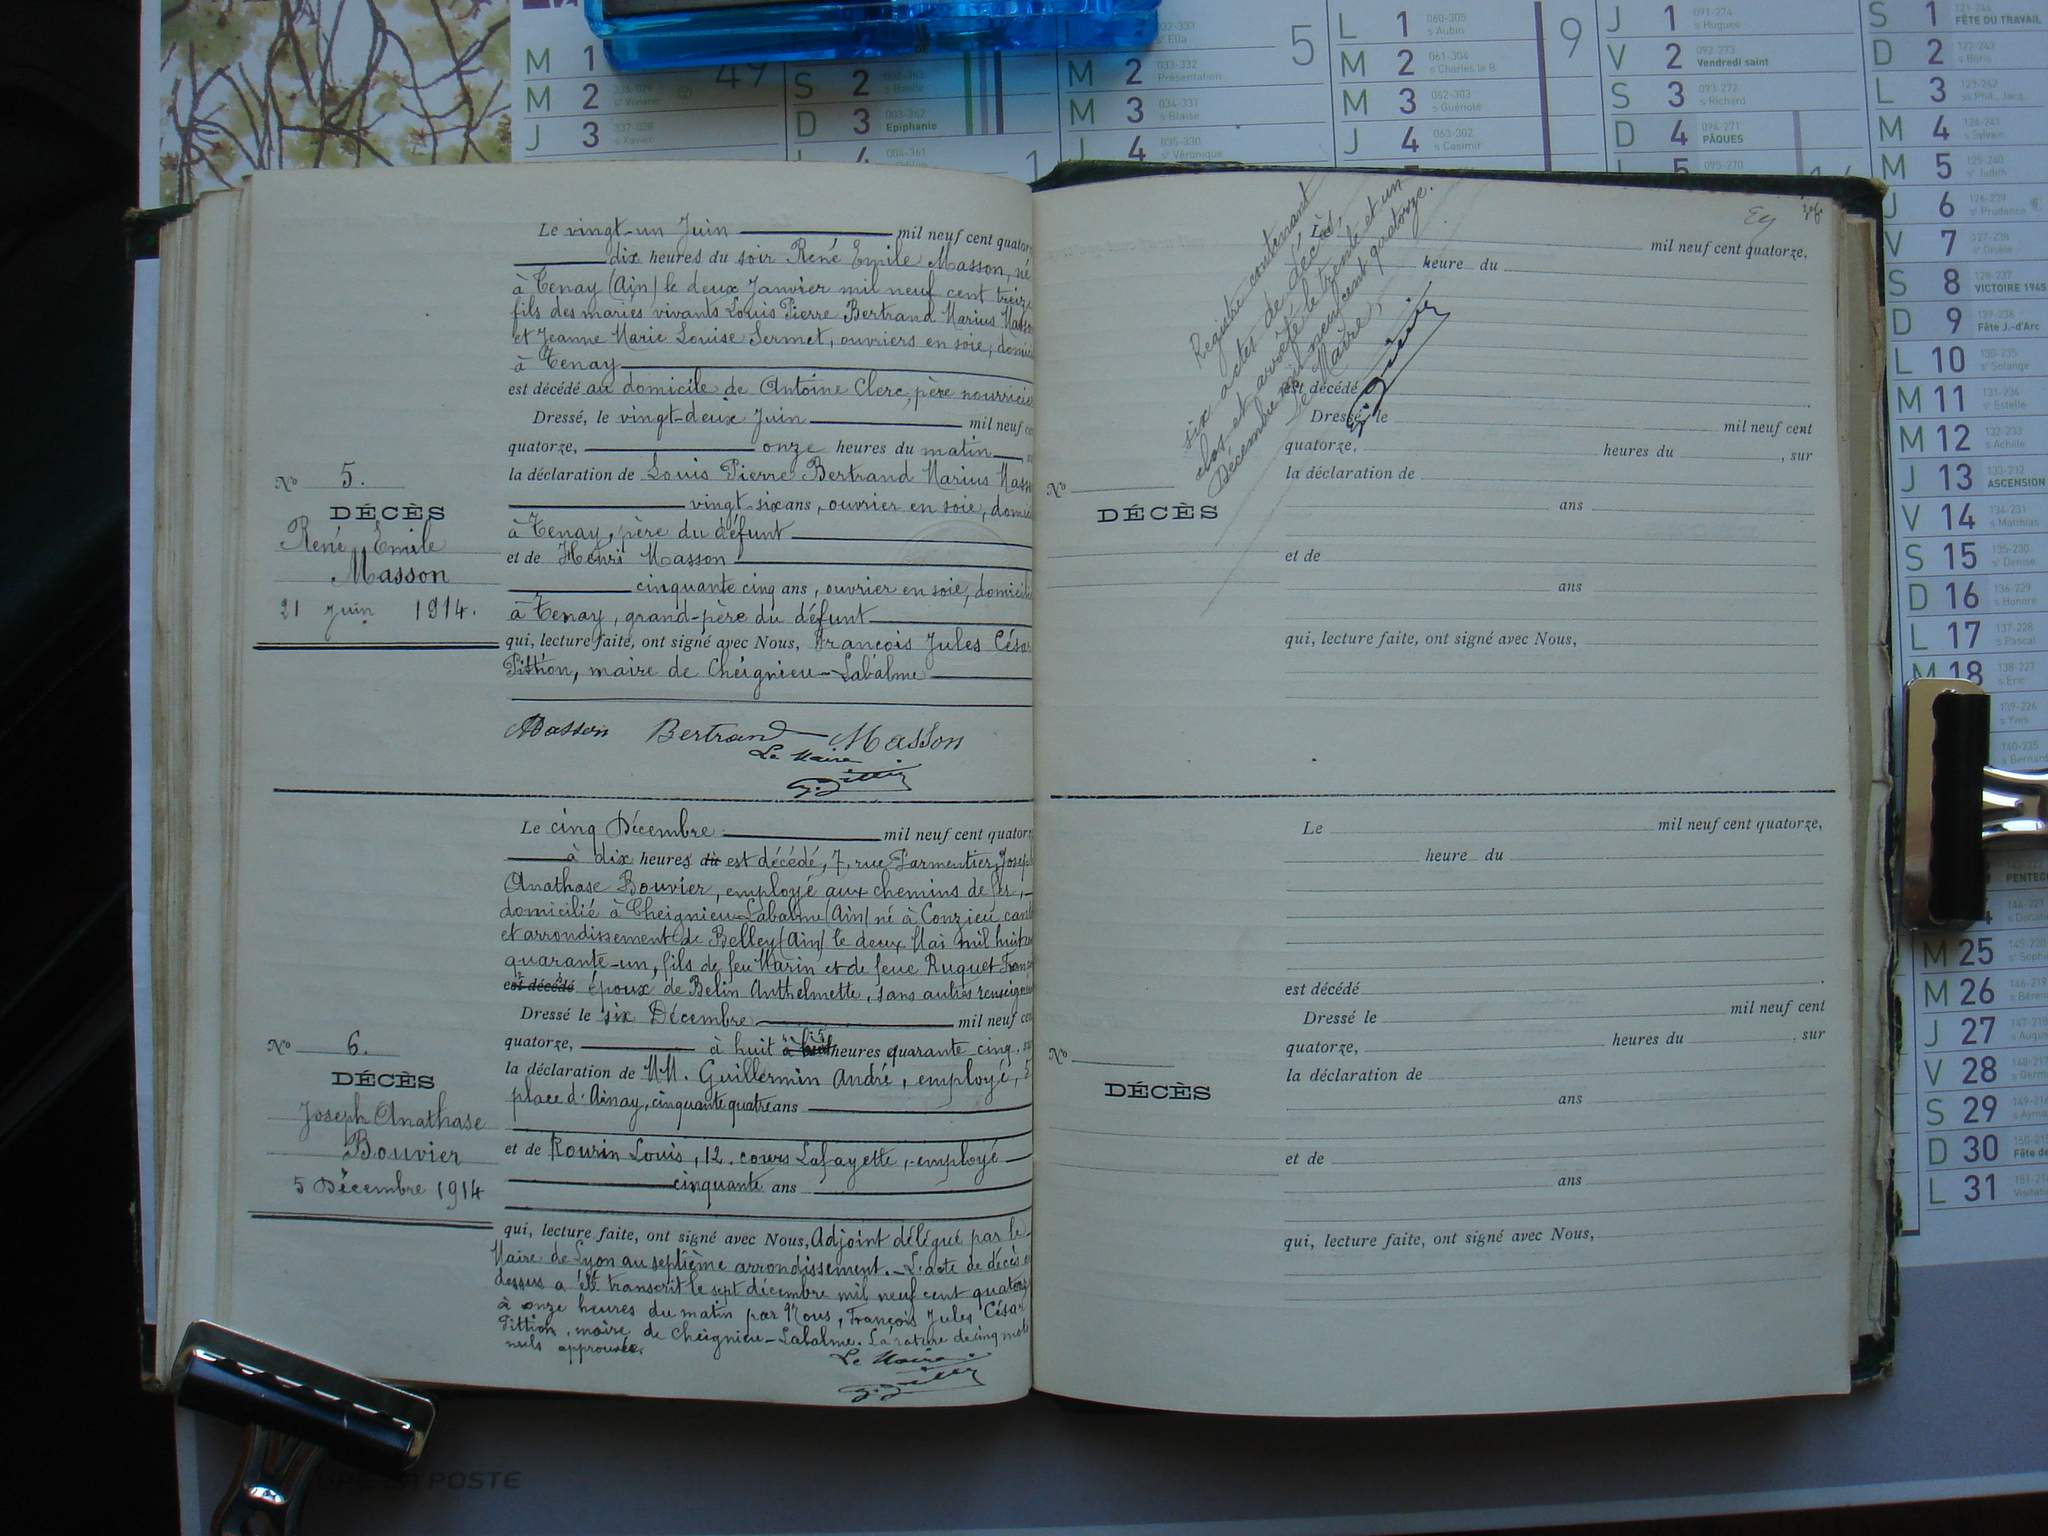 M 1
M 2 336-029 sᵉ Viviane
J 3 337-028 s Xavier
49
S 2 002-363 s Basile
D 3 003-362 Epiphanie
L 4 004-361
1
032-333 sᵉ Ella
M 2 033-332 Présentation
M 3 034-331 s Blaise
J 4 035-330 sᵉ Véronique
5
L 1 060-305 s Aubin
M 2 061-304 s Charles le B.
M 3 062-303 s Guénolé
J 4 063-302 s Casimir
9
J 1 091-274 s Hugues
V 2 092-273 Vendredi saint
S 3 093-272 s Richard
D 4 094-271 PÂQUES
L 5 095-270
S 1 121-244 FÊTE DU TRAVAIL
D 2 122-243 s Boris
L 3 123-242 ss Phil., Jacq.
M 4 124-241 s Sylvain
M 5 125-240 sᵉ Judith
J 6 126-239 sᵉ Prudence
V 7 127-238 sᵉ Gisèle
S 8 128-237 VICTOIRE 1945
D 9 129-236 Fête J.-d'Arc
L 10 130-235 sᵉ Solange
M 11 131-234 sᵉ Estelle
M 12 132-233 s Achille
J 13 133-232 ASCENSION
V 14 134-231 s Matthias
S 15 135-230 sᵉ Denise
D 16 136-229 s Honoré
L 17 137-228 s Pascal
M 18 138-227 s Eric
139-226 s Yves
140-225 s Bernard
PENTEC
144-221 s Donati
M 25 145-220 sᵉ Sophie
M 26 146-219 s Béren
J 27 147-218 s Augus
V 28 148-217 s Germ
S 29 149-216 s Aymar
D 30 150-215 Fête de
L 31 151-214 Visitati
Le vingt-un Juin mil neuf cent quator
dix heures du soir René Emile Masson, né
à Tenay (Ain) le deux Janvier mil neuf cent treize
fils des mariés vivants Louis Pierre Bertrand Marius Masso
et Jeanne Marie Louise Sermet, ouvriers en soie, domici
à Tenay
est décédé au domicile de Antoine Clerc, père nourricier
Dressé, le vingt-deux Juin mil neuf ce
quatorze, onze heures du matin, s
la déclaration de Louis Pierre Bertrand Marius Masso
vingt-six ans, ouvrier en soie, domic
à Tenay, père du défunt
et de Henri Masson
cinquante cinq ans, ouvrier en soie, domicili
à Tenay, grand-père du défunt
qui, lecture faite, ont signé avec Nous, François Jules César
Pittion, maire de Cheignieu-Labalme
Masson Bertrand Masson
Le Maire
Nº 5.
DÉCÈS
René Emile
Masson
21 Juin 1914.
Le cinq Décembre mil neuf cent quator
à dix heures du est décédé, 7, rue Parmentier, Josep
Anathase Bouvier, employé aux chemins de fer,
domicilié à Cheignieu-Labalme (Ain) né à Conzieu cant
et arrondissement de Belley (Ain) le deux Mai mil huit ce
quarante-un, fils de feu Marin et de feue Ruguet Fran
est décédé époux de Belin Anthelmette, sans autres renseigne
Dressé le six Décembre mil neuf ce
quatorze, à huit à huit heures quarante cinq, s
la déclaration de MM. Guillermin André, employé, 5
place d'Ainay, cinquante quatre ans
et de Rourin Louis, 12. cours Lafayette, employé
cinquante ans
qui, lecture faite, ont signé avec Nous, Adjoint délégué par le
Maire de Lyon au septième arrondissement. - L'acte de décès ci
dessus a été transcrit le sept décembre mil neuf cent quatorz
à onze heures du matin par Nous, François Jules César
Pittion, maire de Cheignieu-Labalme. La rature de cinq mots
nuls approuvée.
Le Maire
Nº 6.
DÉCÈS
Joseph Anathase
Bouvier
5 Décembre 1914
Registre contenant
six actes de décès,
clos et arrêté le trente et un
Décembre mil neuf cent quatorze.
Le Maire,
Le mil neuf cent quatorze,
heure du
est décédé
Dressé, le mil neuf cent
quatorze, heures du , sur
la déclaration de
ans
et de
ans
qui, lecture faite, ont signé avec Nous,
Nº
DÉCÈS
Le mil neuf cent quatorze,
heure du
est décédé
Dressé le mil neuf cent
quatorze, heures du , sur
la déclaration de
ans
et de
ans
qui, lecture faite, ont signé avec Nous,
Nº
DÉCÈS
POSTE